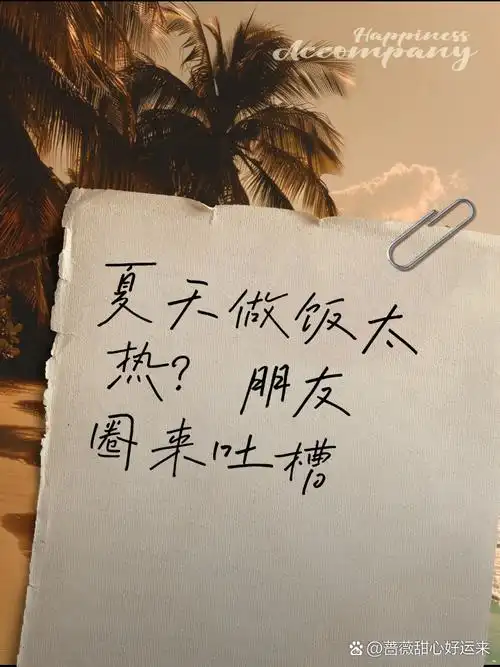 Happiness
Accompany
夏天做饭太
热? 朋友
圈来吐槽
@蔷薇甜心好运来